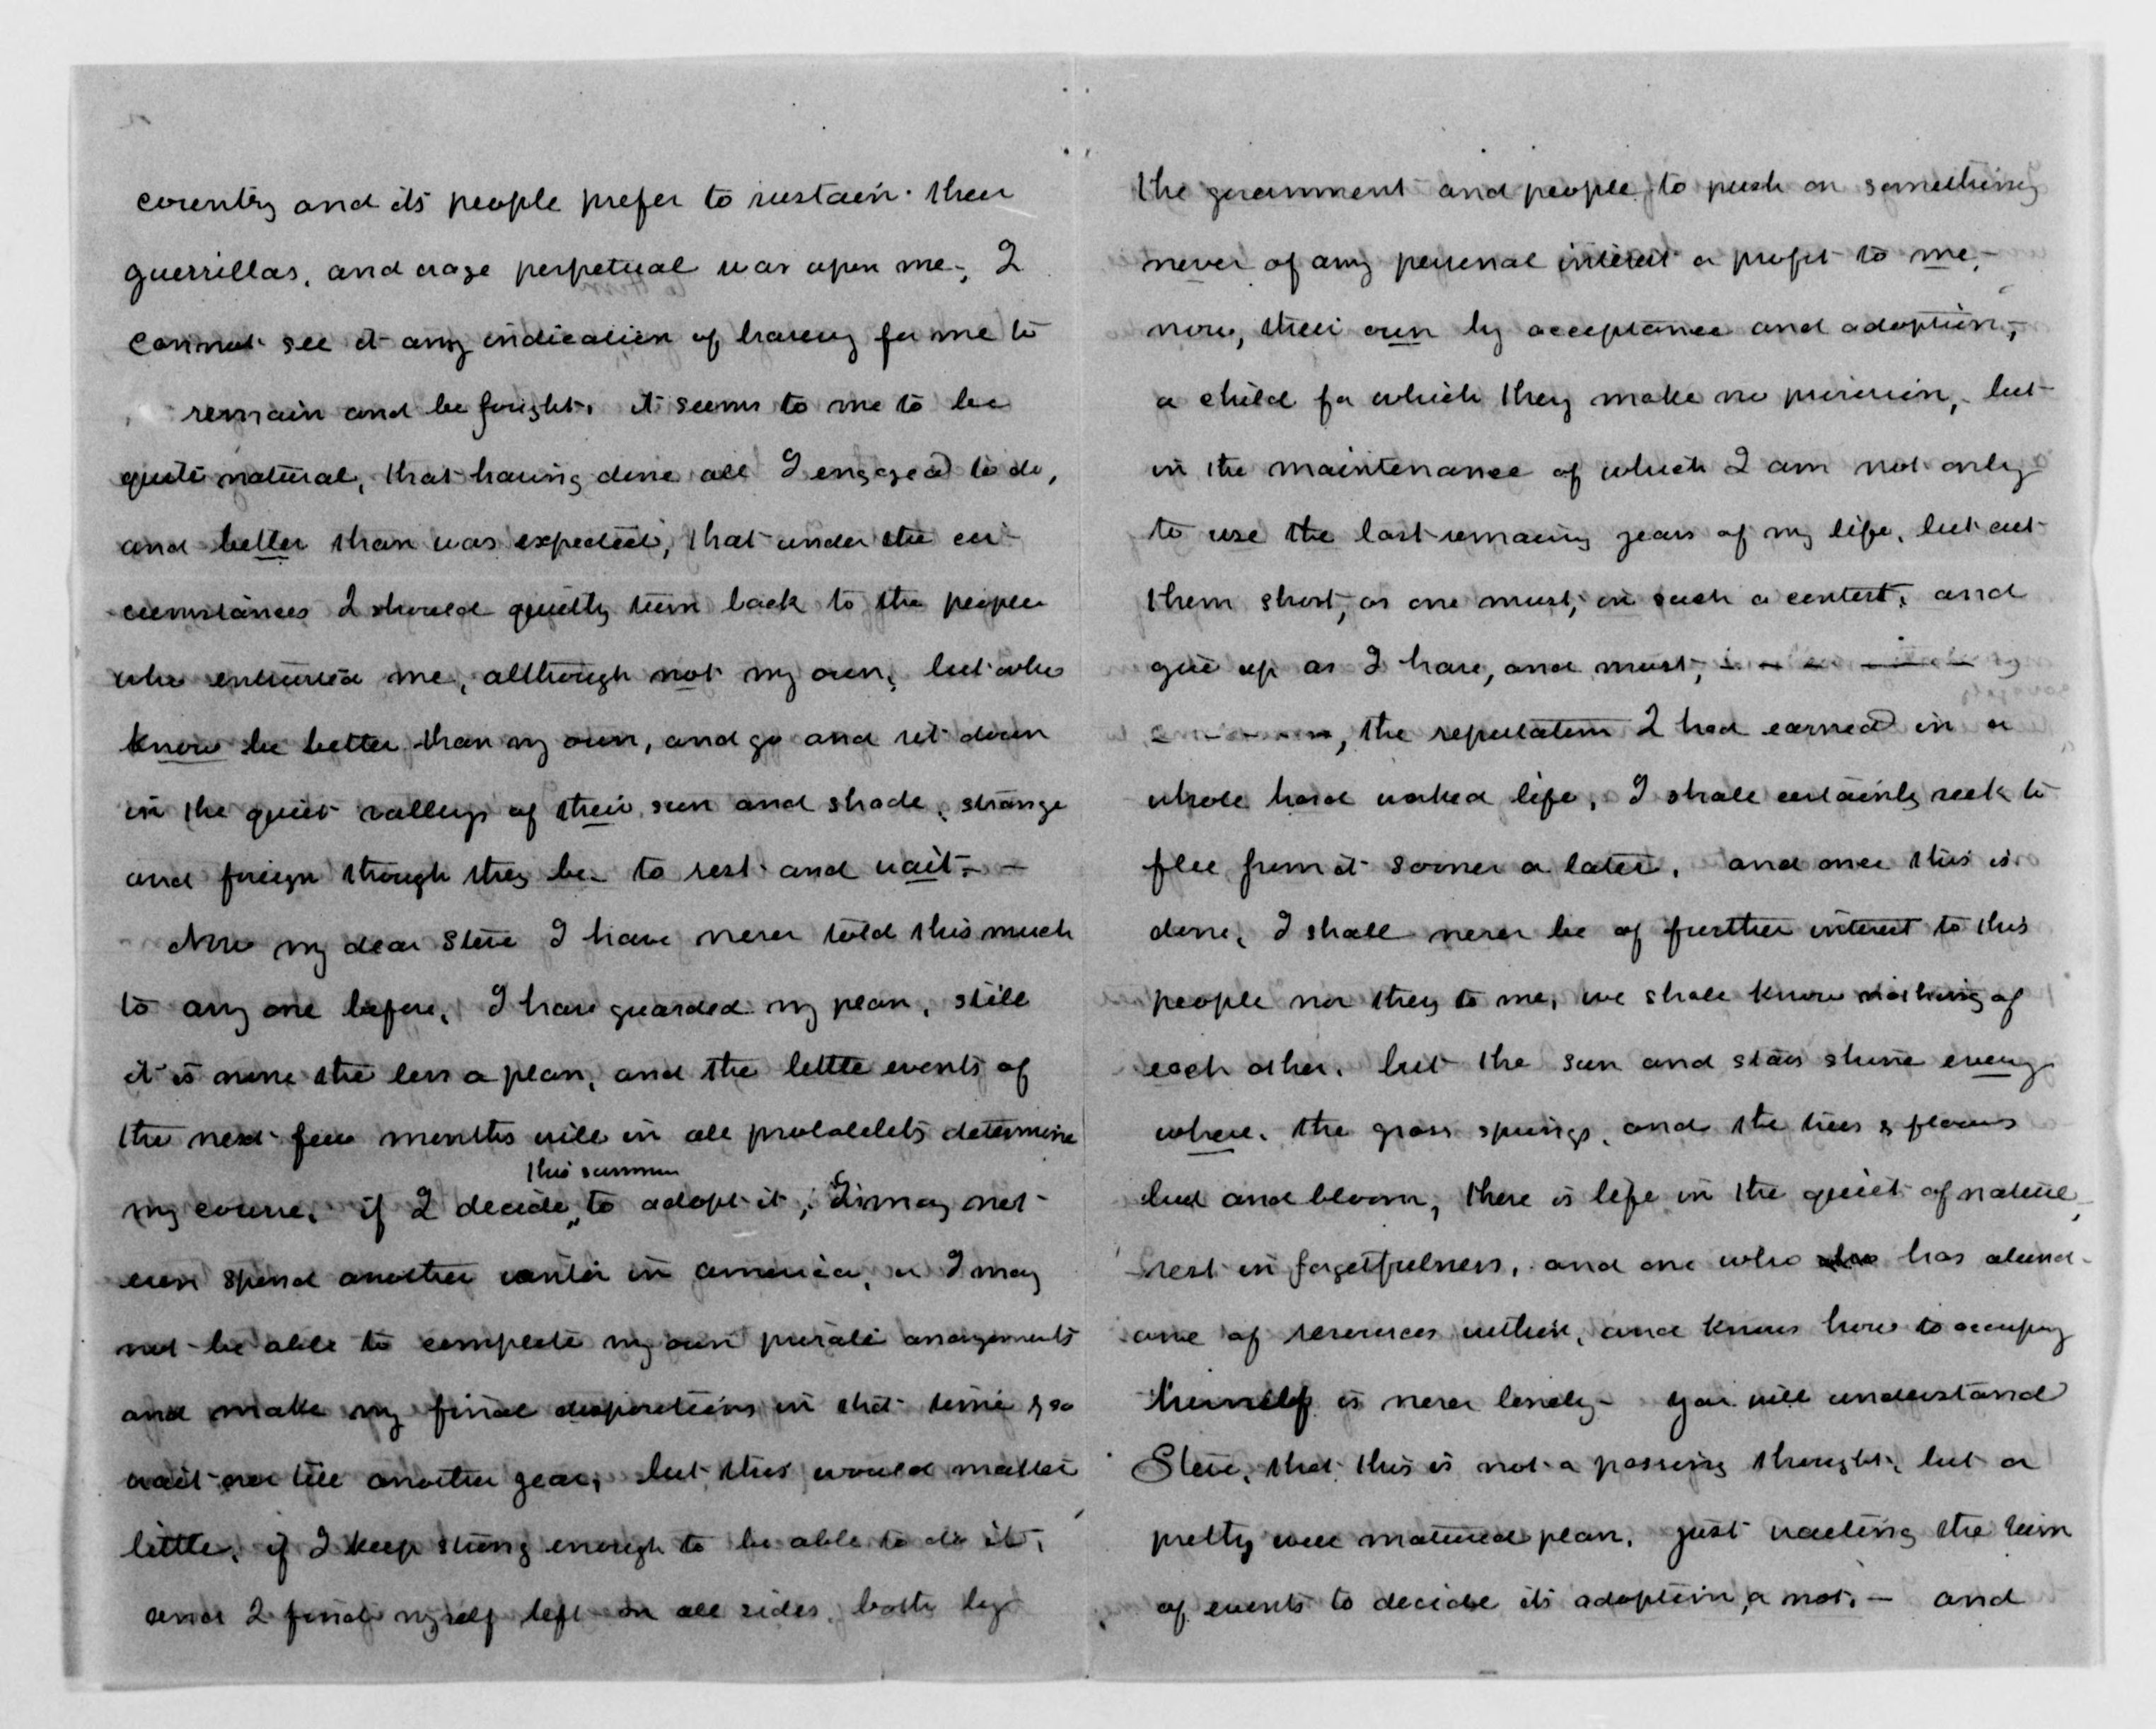 country and its people prefer to sustain their
guerrillas, and wage perpetual war upon me, I
cannot see it any indication of bravery for me to
remain and be fought. it seems to me to be
quite natural, that having done all I engaged to do,
and better than was expected, that under the cir-
cumstances I should quietly turn back to the people
who entrusted me, although not my own, but who
know me better than my own, and go and sit down
in the quiet valleys of their sun and shade, strange
and foreign though they be - to rest and wait. -
Now my dear Steve I have never told this much
to any one before, I have guarded my plan, still
it is none the less a plan, and the little events of
the next few months will in all probability determine
this summer
my course. if I decide to adopt it, I may not
even spend another winter in america, or I may
not be able to complete my own private arrangements
and make my final dispositions in that time & so
wait over till another year, but this would matter
little, if I keep strong enough to be able to do it,
and I find myself left on all sides, both by
the government and people to push on something
never of any personal interest or profit to me,-
now, their own by acceptance and adoption,
a child for which they make no provision, but
in the maintenance of which I am not only
to use the last remaining years of my life, but cut
them short, as one must, in such a contest, and
give up as I have, and must,
, the reputation I had earned in a
whole hard worked life, I shall certainly seek to
flee from it sooner or later, and once this is
done, I shall never be of further interest to this
people nor they to me, we shall know nothing of
each other. but the sun and stars shine every
where. the grass springs, and the trees & flowers
bud and bloom, there is life in the quiet of nature,
rest in forgetfulness, and one who has abund-
ance of resources within, and knows how to occupy
himself is never lonely - you will understand
Steve, that this is not a passing thought, but a
pretty well matured plan, just waiting the turn
of events to decide its adoption, or not. - and